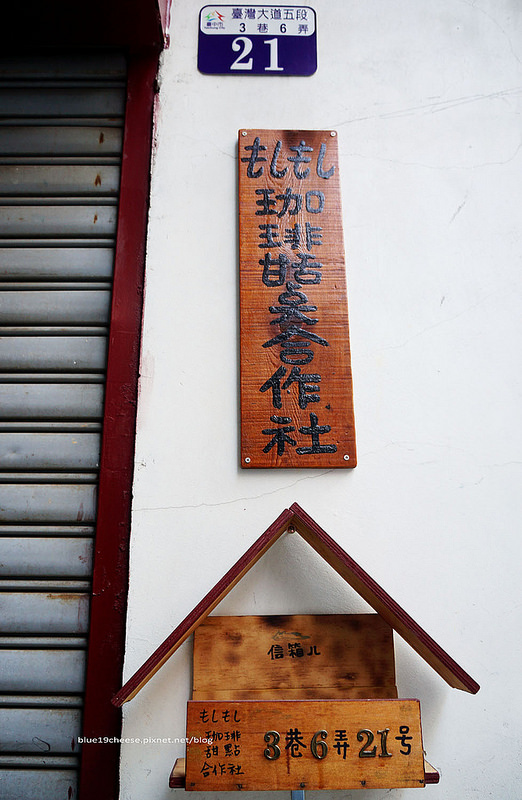 臺中市
臺灣大道五段
3 巷 6 弄
21
もしもし
珈
琲
甜點
合
作
社
信箱ル
もしもし
珈琲
甜點
合作社
3巷6弄21号
blue19cheese.pixnet.net/blog